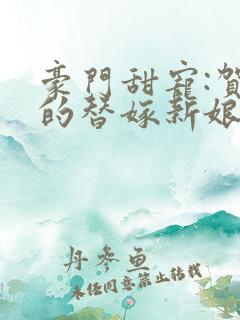 豪門甜寵:賀
的替嫁新娘
丹參魚
未经同意禁止转载